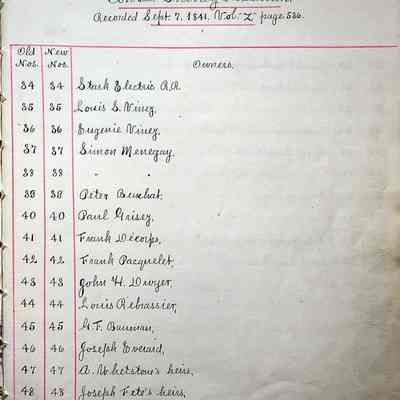 Recorded Sept. 7, 1841. Vol. "Z" page 536.
Old Nos. New Nos. Owners.
34 34 Stark Electric R.R.
35 35 Louis S. Viney,
36 36 Eugenie Viney,
37 37 Simon Menegay,
38 38 " "
39 39 Peter Buschat,
40 40 Paul Grisey,
41 41 Frank Decorps,
42 42 Frank Pacquelet,
43 43 John H. Dwyer,
44 44 Louis Rebrassier,
45 45 G. F. Bauman,
46 46 Joseph Everard,
47 47 A. Whetstone's heirs,
48 48 Joseph Fete's heirs,